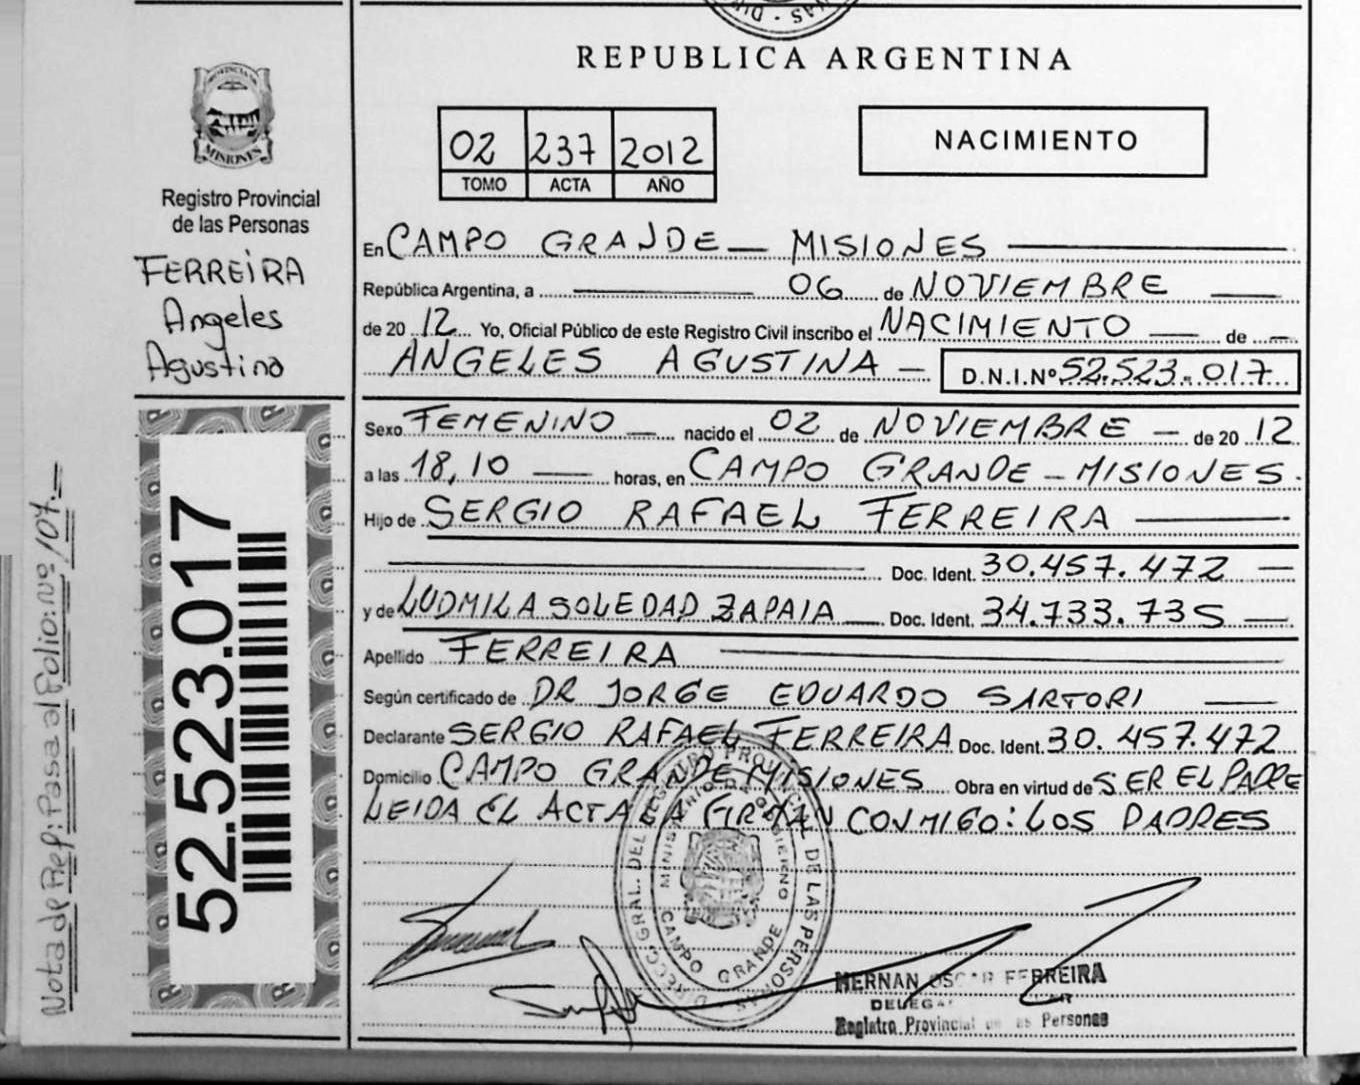 REPUBLICA ARGENTINA
PROVINCIA DE
MISIONES
Registro Provincial
de las Personas
FERREIRA
Angeles
Agustina
52.523.017
Nota de Ref: Pasa al Folio: Nº 107.=
02 237 2012
TOMO ACTA AÑO
NACIMIENTO
En CAMPO GRANDE — MISIONES
República Argentina, a 06 de NOVIEMBRE
de 20 12 Yo, Oficial Público de este Registro Civil inscribo el NACIMIENTO — de —
ANGELES AGUSTINA — D.N.I.Nº 52.523.017
Sexo FEMENINO — nacido el 02 de NOVIEMBRE — de 20 12
a las 18,10 — horas, en CAMPO GRANDE - MISIONES.
Hijo de SERGIO RAFAEL FERREIRA —
Doc. Ident. 30.457.472 —
y de LUDMILA SOLEDAD ZAPAIA — Doc. Ident. 34.733.735 —
Apellido FERREIRA —
Según certificado de DR JORGE EDUARDO SARTORI —
Declarante SERGIO RAFAEL FERREIRA Doc. Ident. 30.457.472
Domicilio CAMPO GRANDE MISIONES Obra en virtud de SER EL PADRE
LEIDA EL ACTA LA CONMIGO: LOS PADRES
MINISTERIO DE GOBIERNO
CAMPO GRANDE
HERNAN OSCAR FERREIRA
Registro Provincial de las Personas